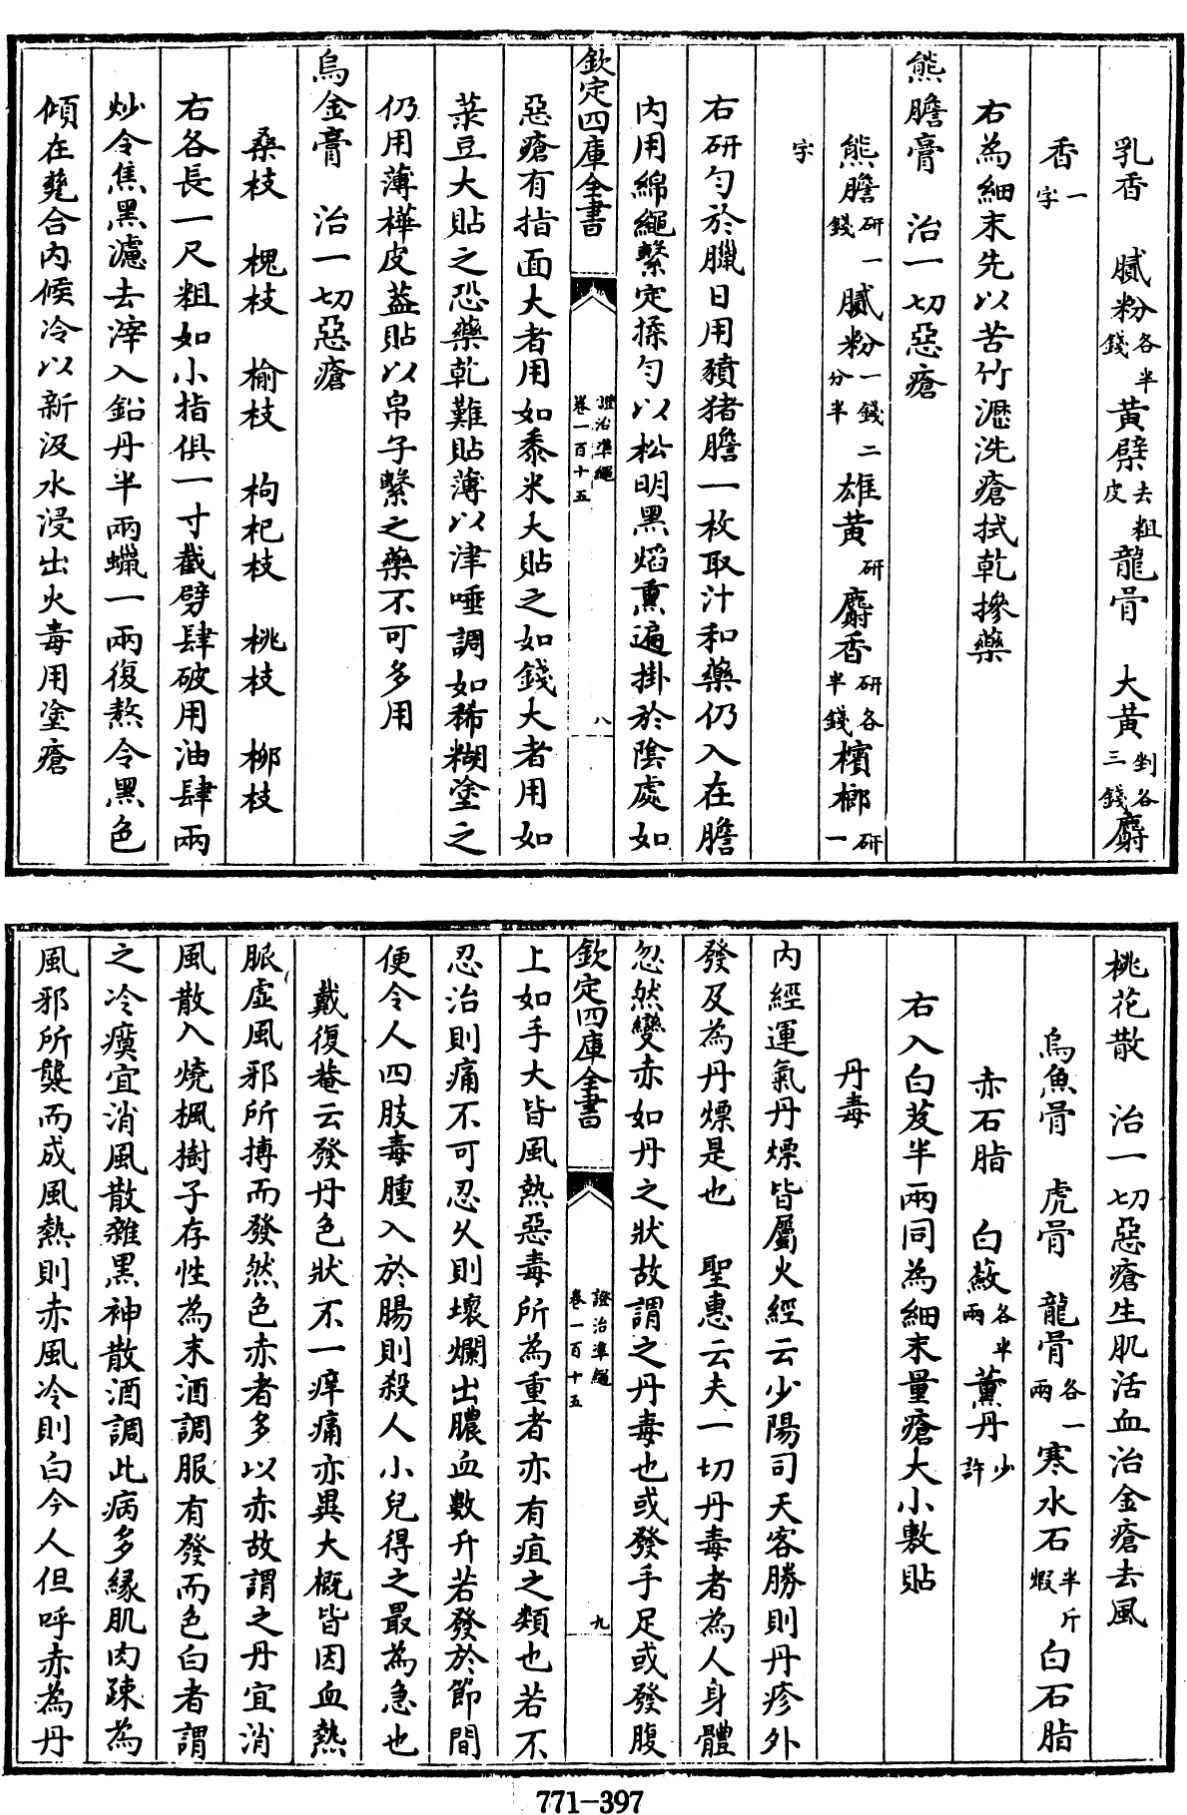 乳香　膩粉各半錢　黄檗去粗皮　龍骨　大黄剉各三錢　麝
香一字
右為細末先以苦竹瀝洗瘡拭乾摻藥
熊膽膏　治一切惡瘡
熊膽研一錢　膩粉一錢二分半　雄黄研　麝香研各半錢　檳榔研一
字
右研勻於臘日用豶猪膽一枚取汁和藥仍入在膽
内用綿繩繫定揉勻以松明黑焰熏遍掛於陰處如
欽定四庫全書　證治準繩卷一百十五　八
惡瘡有指面大者用如黍米大貼之如錢大者用如
菉豆大貼之恐藥乾難貼薄以津唾調如稀糊塗之
仍用薄樺皮葢貼以帛子繫之藥不可多用
烏金膏　治一切惡瘡
桑枝　槐枝　榆枝　枸杞枝　桃枝　栁枝
右各長一尺粗如小指俱一寸截劈肆破用油肆兩
炒令焦黑濾去滓入鉛丹半兩蠟一兩復熬令黑色
傾在甆合内候冷以新汲水浸出火毒用塗瘡
桃花散　治一切惡瘡生肌活血治金瘡去風
烏魚骨　虎骨　龍骨各一兩　寒水石半斤煅　白石脂
赤石脂　白蘞各半兩　黄丹少許
右入白芨半兩同為細末量瘡大小敷貼
丹毒
内經運氣丹熛皆屬火經云少陽司天客勝則丹疹外
發及為丹熛是也　聖惠云夫一切丹毒者為人身體
忽然變赤如丹之狀故謂之丹毒也或發手足或發腹
欽定四庫全書　證治準繩卷一百十五　九
上如手大皆風熱惡毒所為重者亦有疽之類也若不
忍治則痛不可忍久則壞爛出膿血數升若發於節間
便令人四肢毒腫入於腸則殺人小兒得之最為急也
戴復菴云發丹色狀不一痒痛亦異大概皆因血熱
脈虚風邪所搏而發然色赤者多以赤故謂之丹宜消
風散入燒楓樹子存性為末酒調服有發而色白者謂
之冷瘼宜消風散雜黑神散酒調此病多緣肌肉疎為
風邪所襲而成風熱則赤風冷則白今人但呼赤為丹
771-397